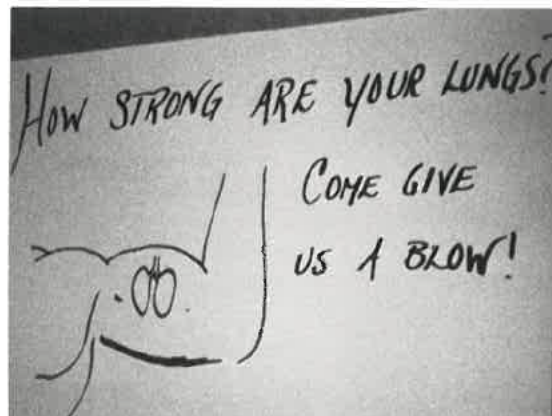 HOW STRONG ARE YOUR LUNGS?
COME GIVE
US A BLOW!